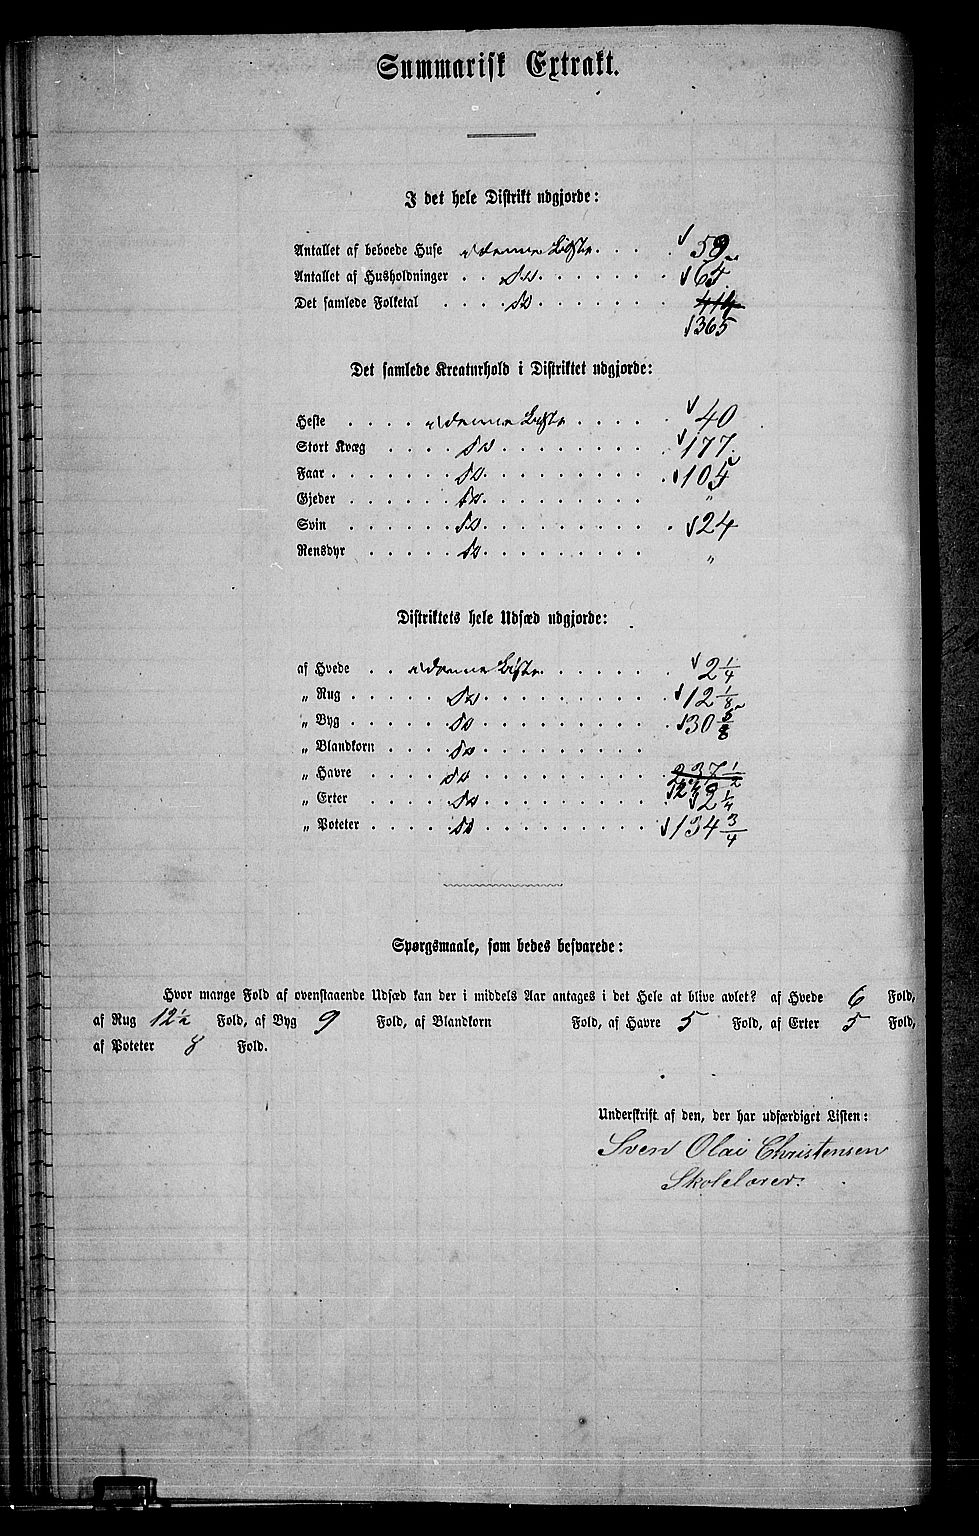 Summarisk Extrakt.
I det hele Distrikt udgjorde:
Antallet af beboede Huse i denne Liste. 59
Antallet af Husholdninger Do. 65
Det samlede Folketal Do 414
365
Det samlede Kreaturhold i Distriktet udgjorde:
Heste i denne Liste 40
Stort Kvæg Do 177
Faar Do 105
Gjeder Do "
Svin Do 24
Rensdyr Do "
Distriktets hele Udsæd udgjorde:
af Hvede i denne Liste 2 1/4
" Rug Do 12 1/8
" Byg Do 30 3/8
" Blandkorn Do
" Havre Do 237 1/2
" Erter Do 2 1/4
" Poteter Do 134 3/4
Spørgsmaale, som bedes besvarede:
Hvor mange Fold af ovenstaaende Udsæd kan der i middels Aar antages i det Hele at blive avlet? af Hvede 6 Fold,
af Rug 12½ Fold, af Byg 9 Fold, af Blandkorn Fold, af Havre 5 Fold, af Erter 5 Fold,
af Poteter 8 Fold.
Underskrift af den, der har udfærdiget Listen:
Sven Olai Christensen
Skolelærer.